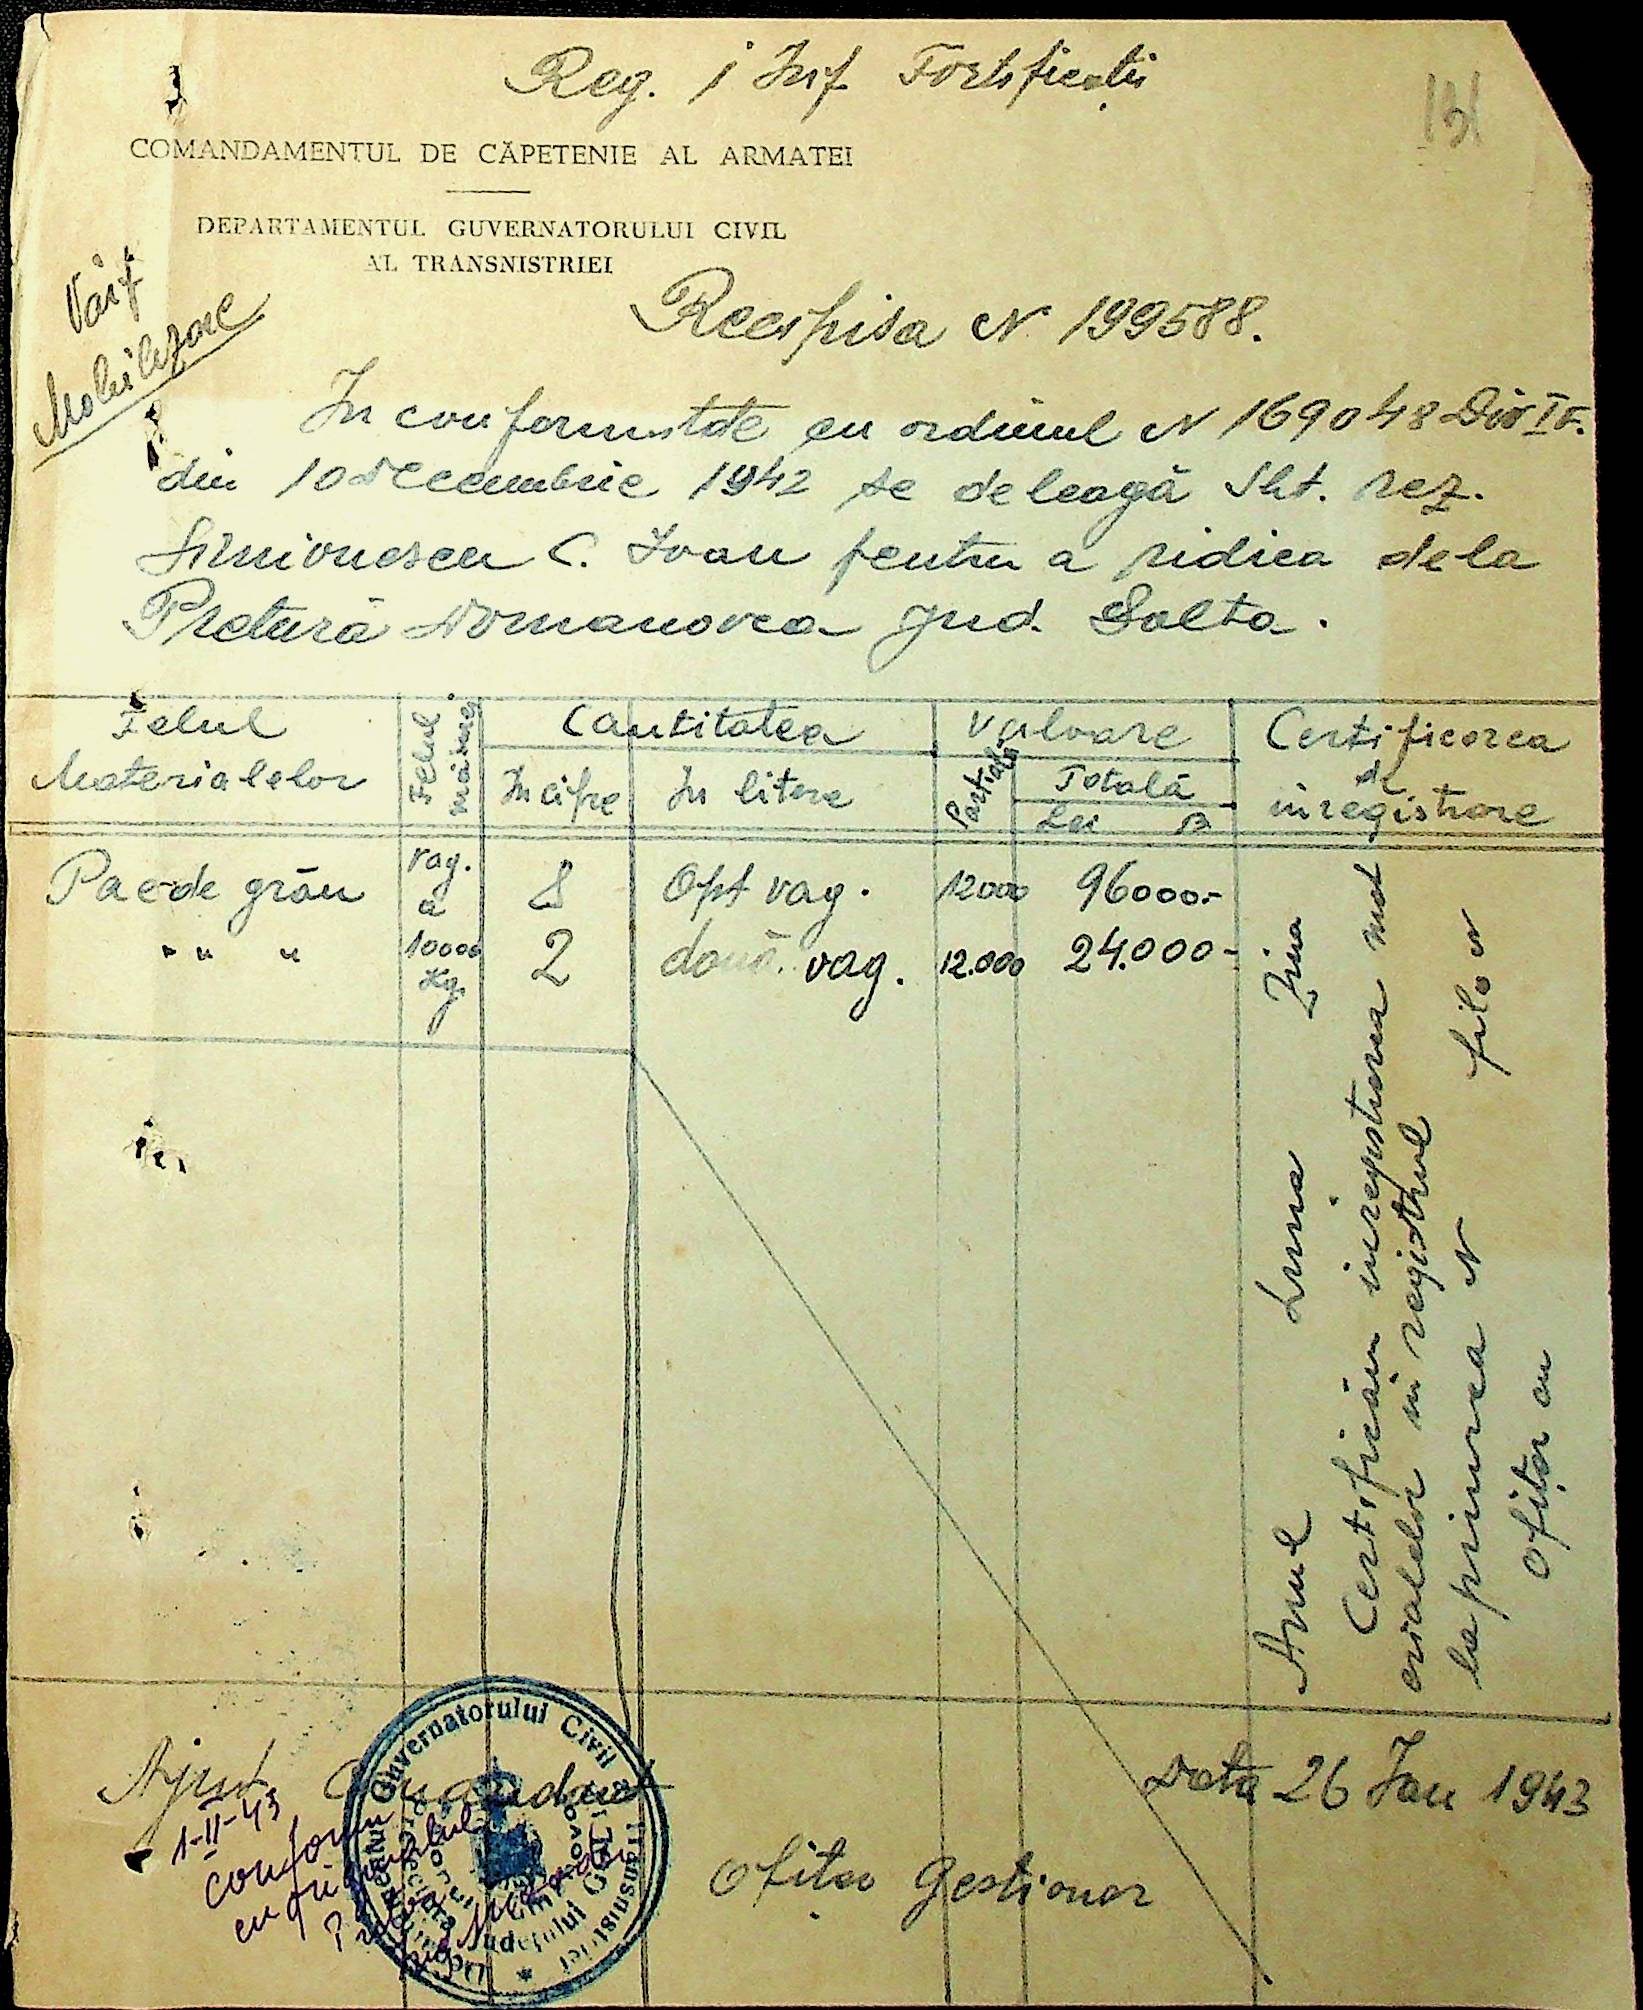 Reg. 1 Inf. Fortificații
131
COMANDAMENTUL DE CĂPETENIE AL ARMATEI
DEPARTAMENTUL GUVERNATORULUI CIVIL
AL TRANSNISTRIEI
Mobilizare
Recipisa N 199588.
In conformitate cu ordinul N 169048
din 10 Decembrie 1942 se deleagă Slt. rez.
Simionescu C. Ioan pentru a ridica dela
Pretură Domanovca Jud. Golta.
Felul Materialelor
Felul
Cantitatea
In cifre
In litere
Valoare
Parțială
Totală
Lei B
Certificarea de inregistrare
Pae de grău vag. a 10000 Kg. 8 Opt vag. 12000 96000.-
" " " 2 două vag. 12.000 24.000-
Anul Luna Ziua
Certificăm inregistrarea mat
erialelor in registrul
la primirea N filo N
Ofițer cu
Ajut. Comandant
Data 26 Ian 1943
Ofițer Gestionar
1-II-43
conform
cu originalul
Guvernatorului Civil
Transnistriei
Județului